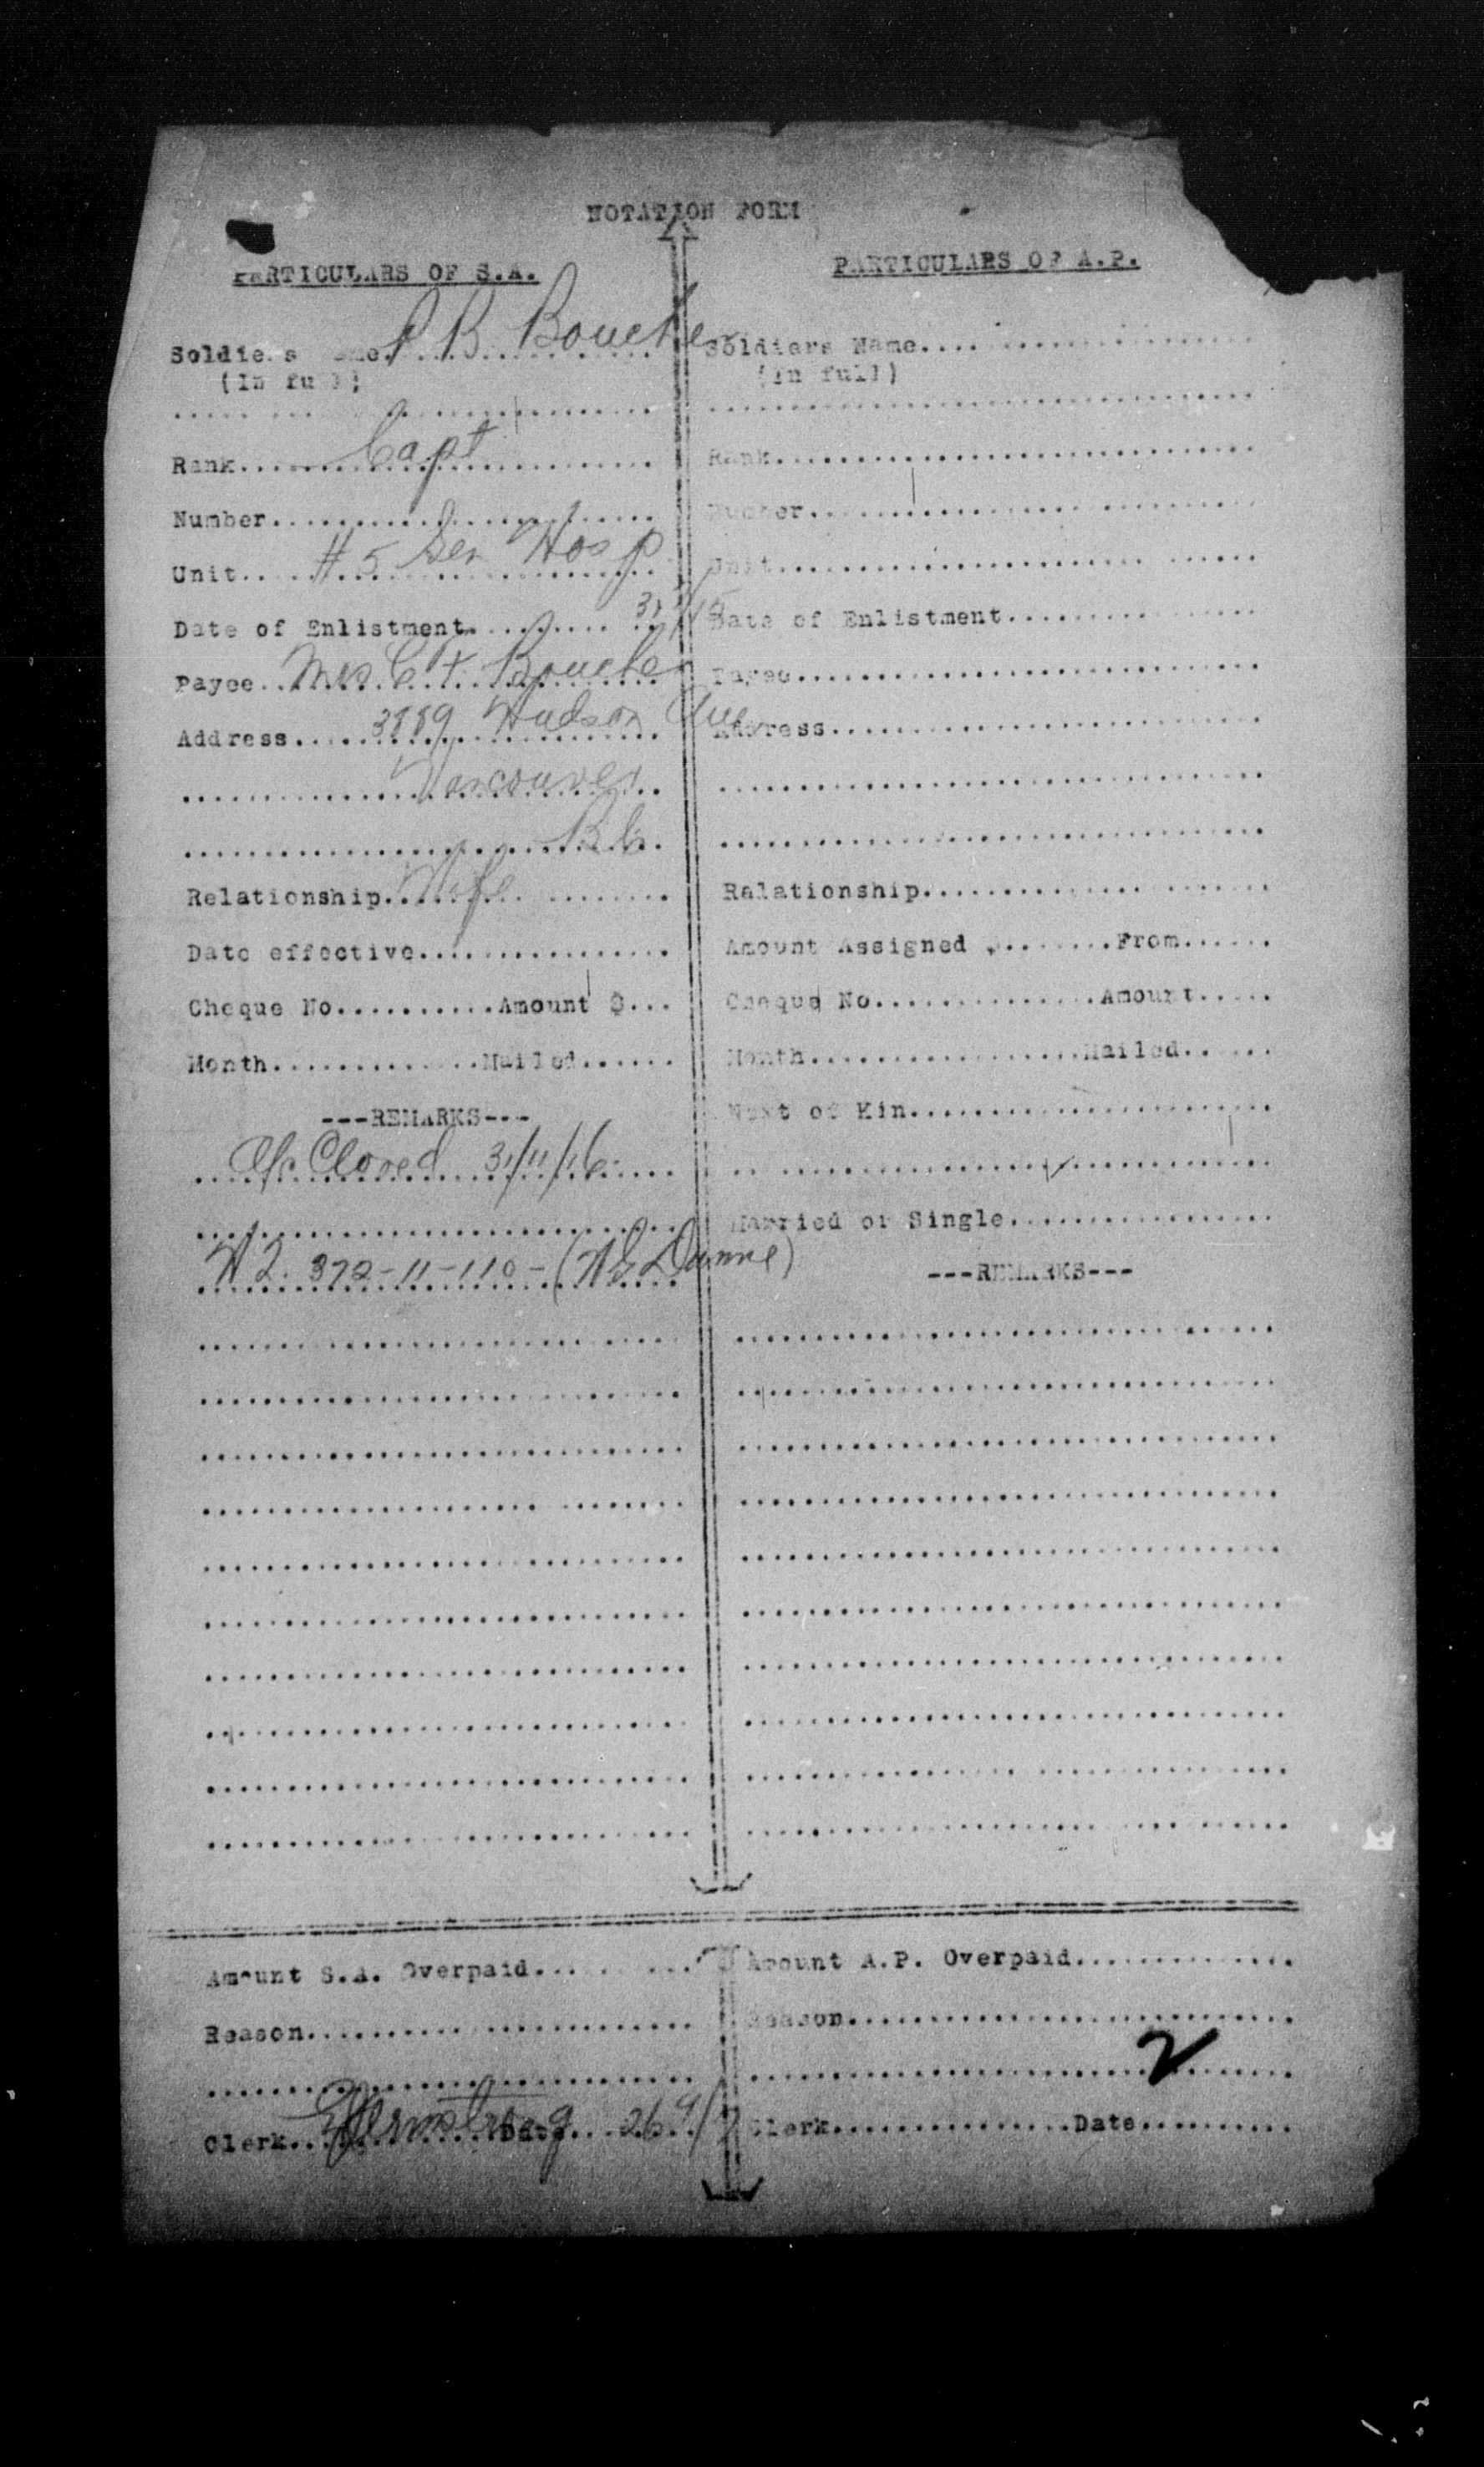 NOTATION FORM
PARTICULARS OF S.A.
Soldiers Name. P B Boucher
(In full)
Rank....... Capt
Number.......
Unit.... # 5 Gen Hosp
Date of Enlistment.......
Payee.. Mrs C F. Boucher
Address.... 3889 Hudson Ave
Vancouver
B.C.
Relationship. Wife
Date effective.......
Cheque No..........Amount $...
Month.............Mailed......
---REMARKS---
A/c Closed 31/11/16
372-11-110-
Amount S.A. Overpaid.......
Reason.......
Clerk.. Date...
PARTICULARS OF A.P.
Soldiers Name.......
(In full)
Rank.......
Number.......
Unit.......
Date of Enlistment.......
Payee.......
Address.......
Ralationship.......
Amount Assigned $.......From......
Cheque No..............Amount.....
Month.................Mailed......
Next of Kin.......
Married or Single.......
---REMARKS---
Amount A.P. Overpaid.......
Reason.......
2
Clerk...............Date..........